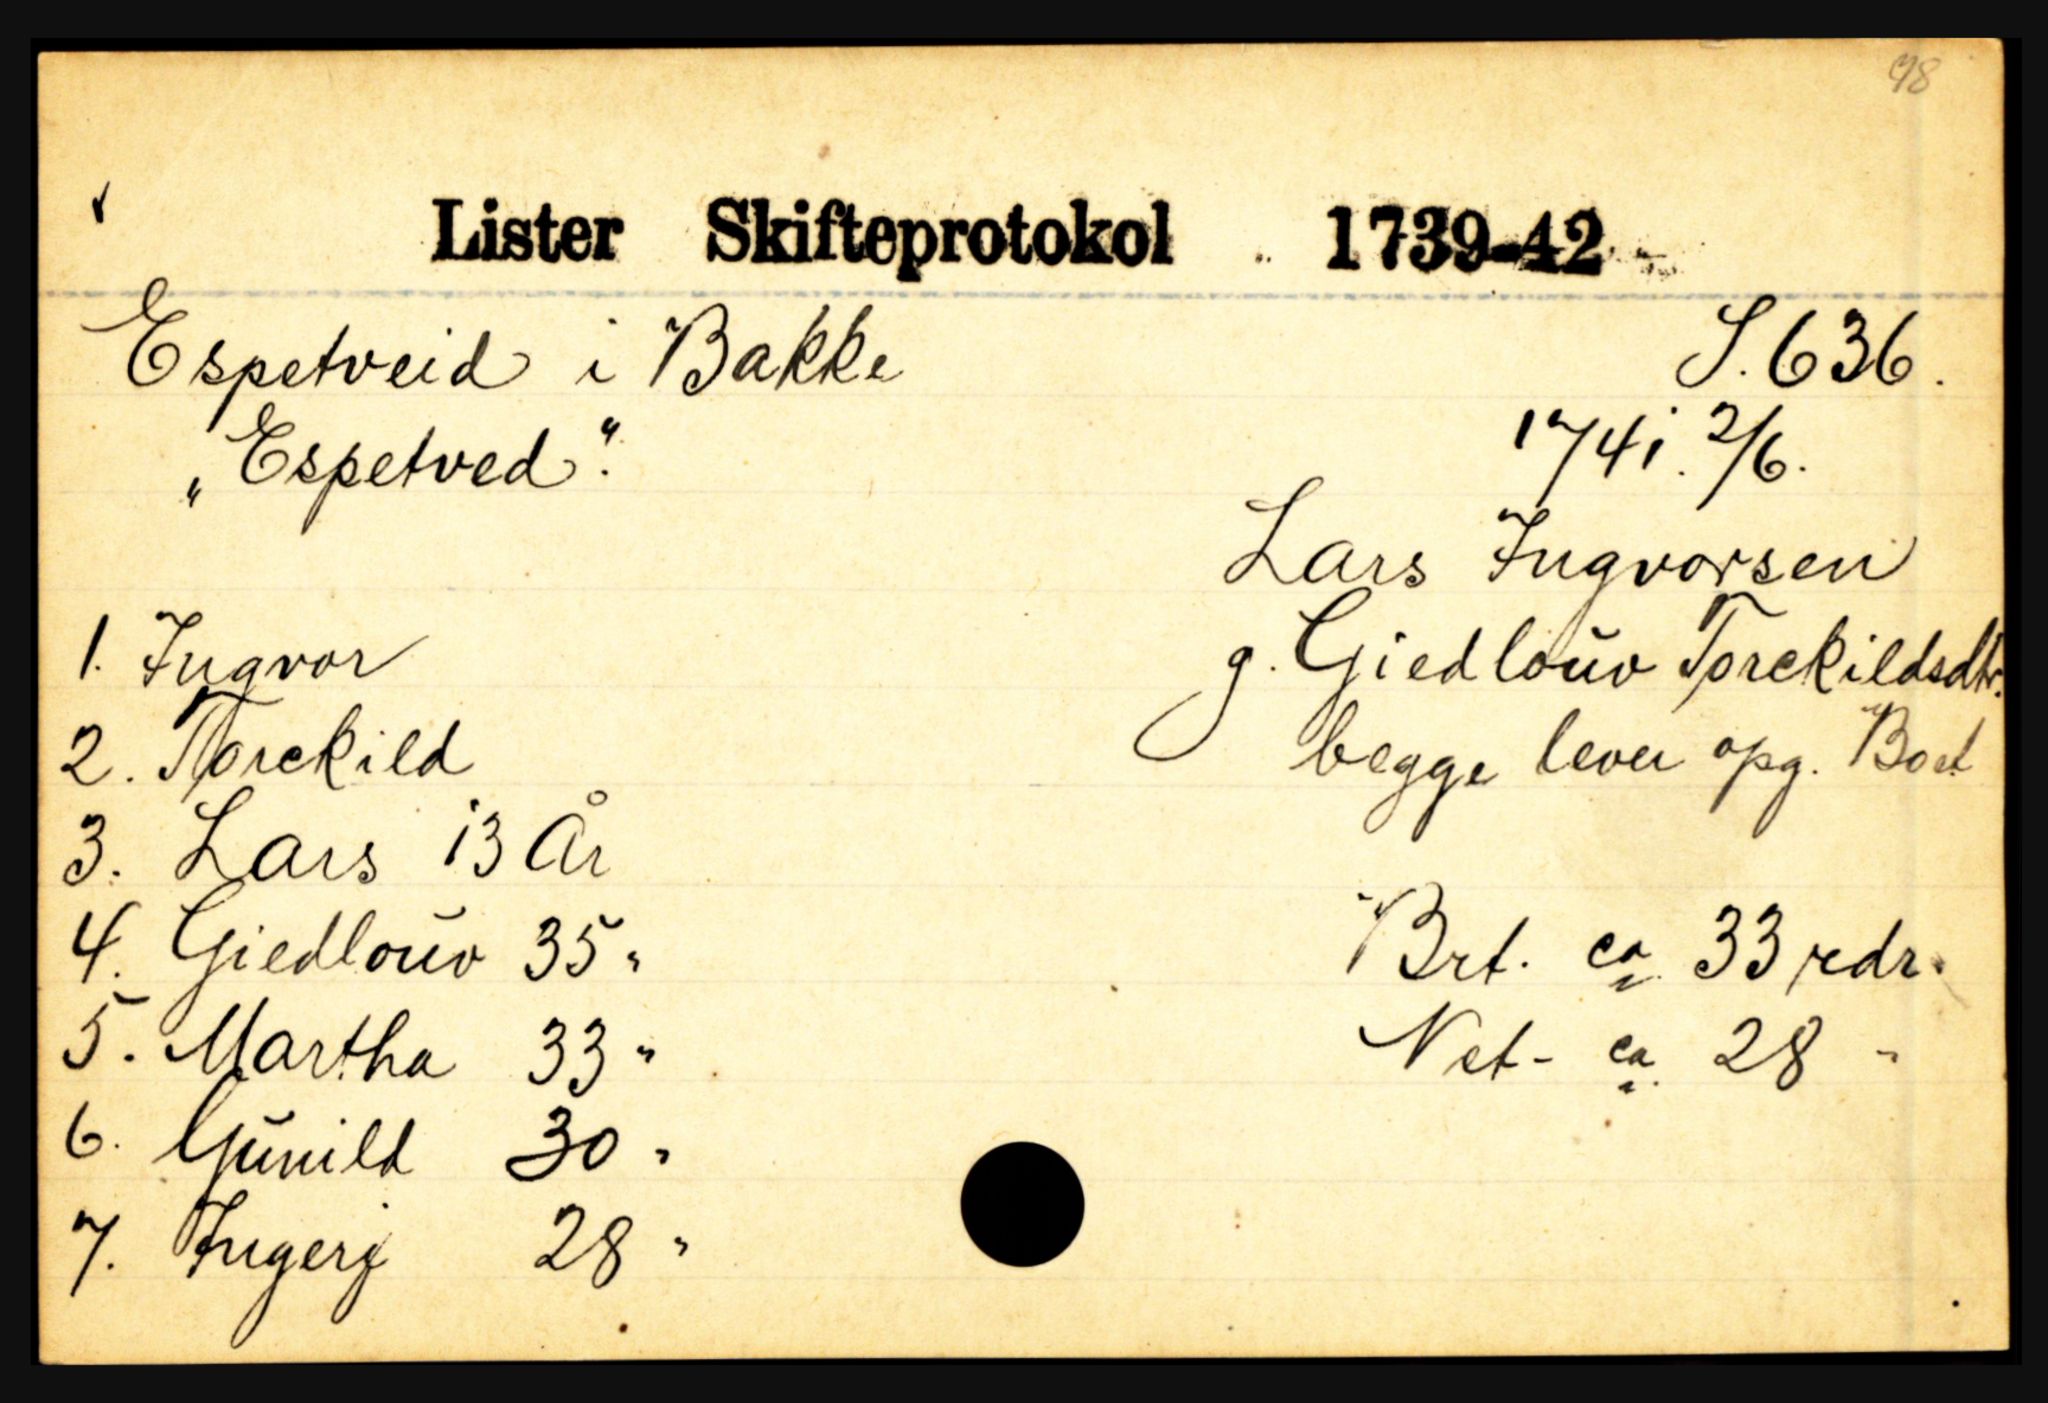 98
Lister Skifteprotokol 1739-42
Espetveid i Bakke S. 636.
„Espetved". 1741. 2/6.
Lars Ingvorsen
1. Ingvor g. Giedloŭv Torckildsdtr.
2. Torckild begge lever opg. Boet
3. Lars 13 År
4. Giedloŭv 35 " Brt. ca 33 rdr.
5. Martha 33 " Net- ca 28 "
6. Gŭnild 30 "
7. Ingerj 28 "